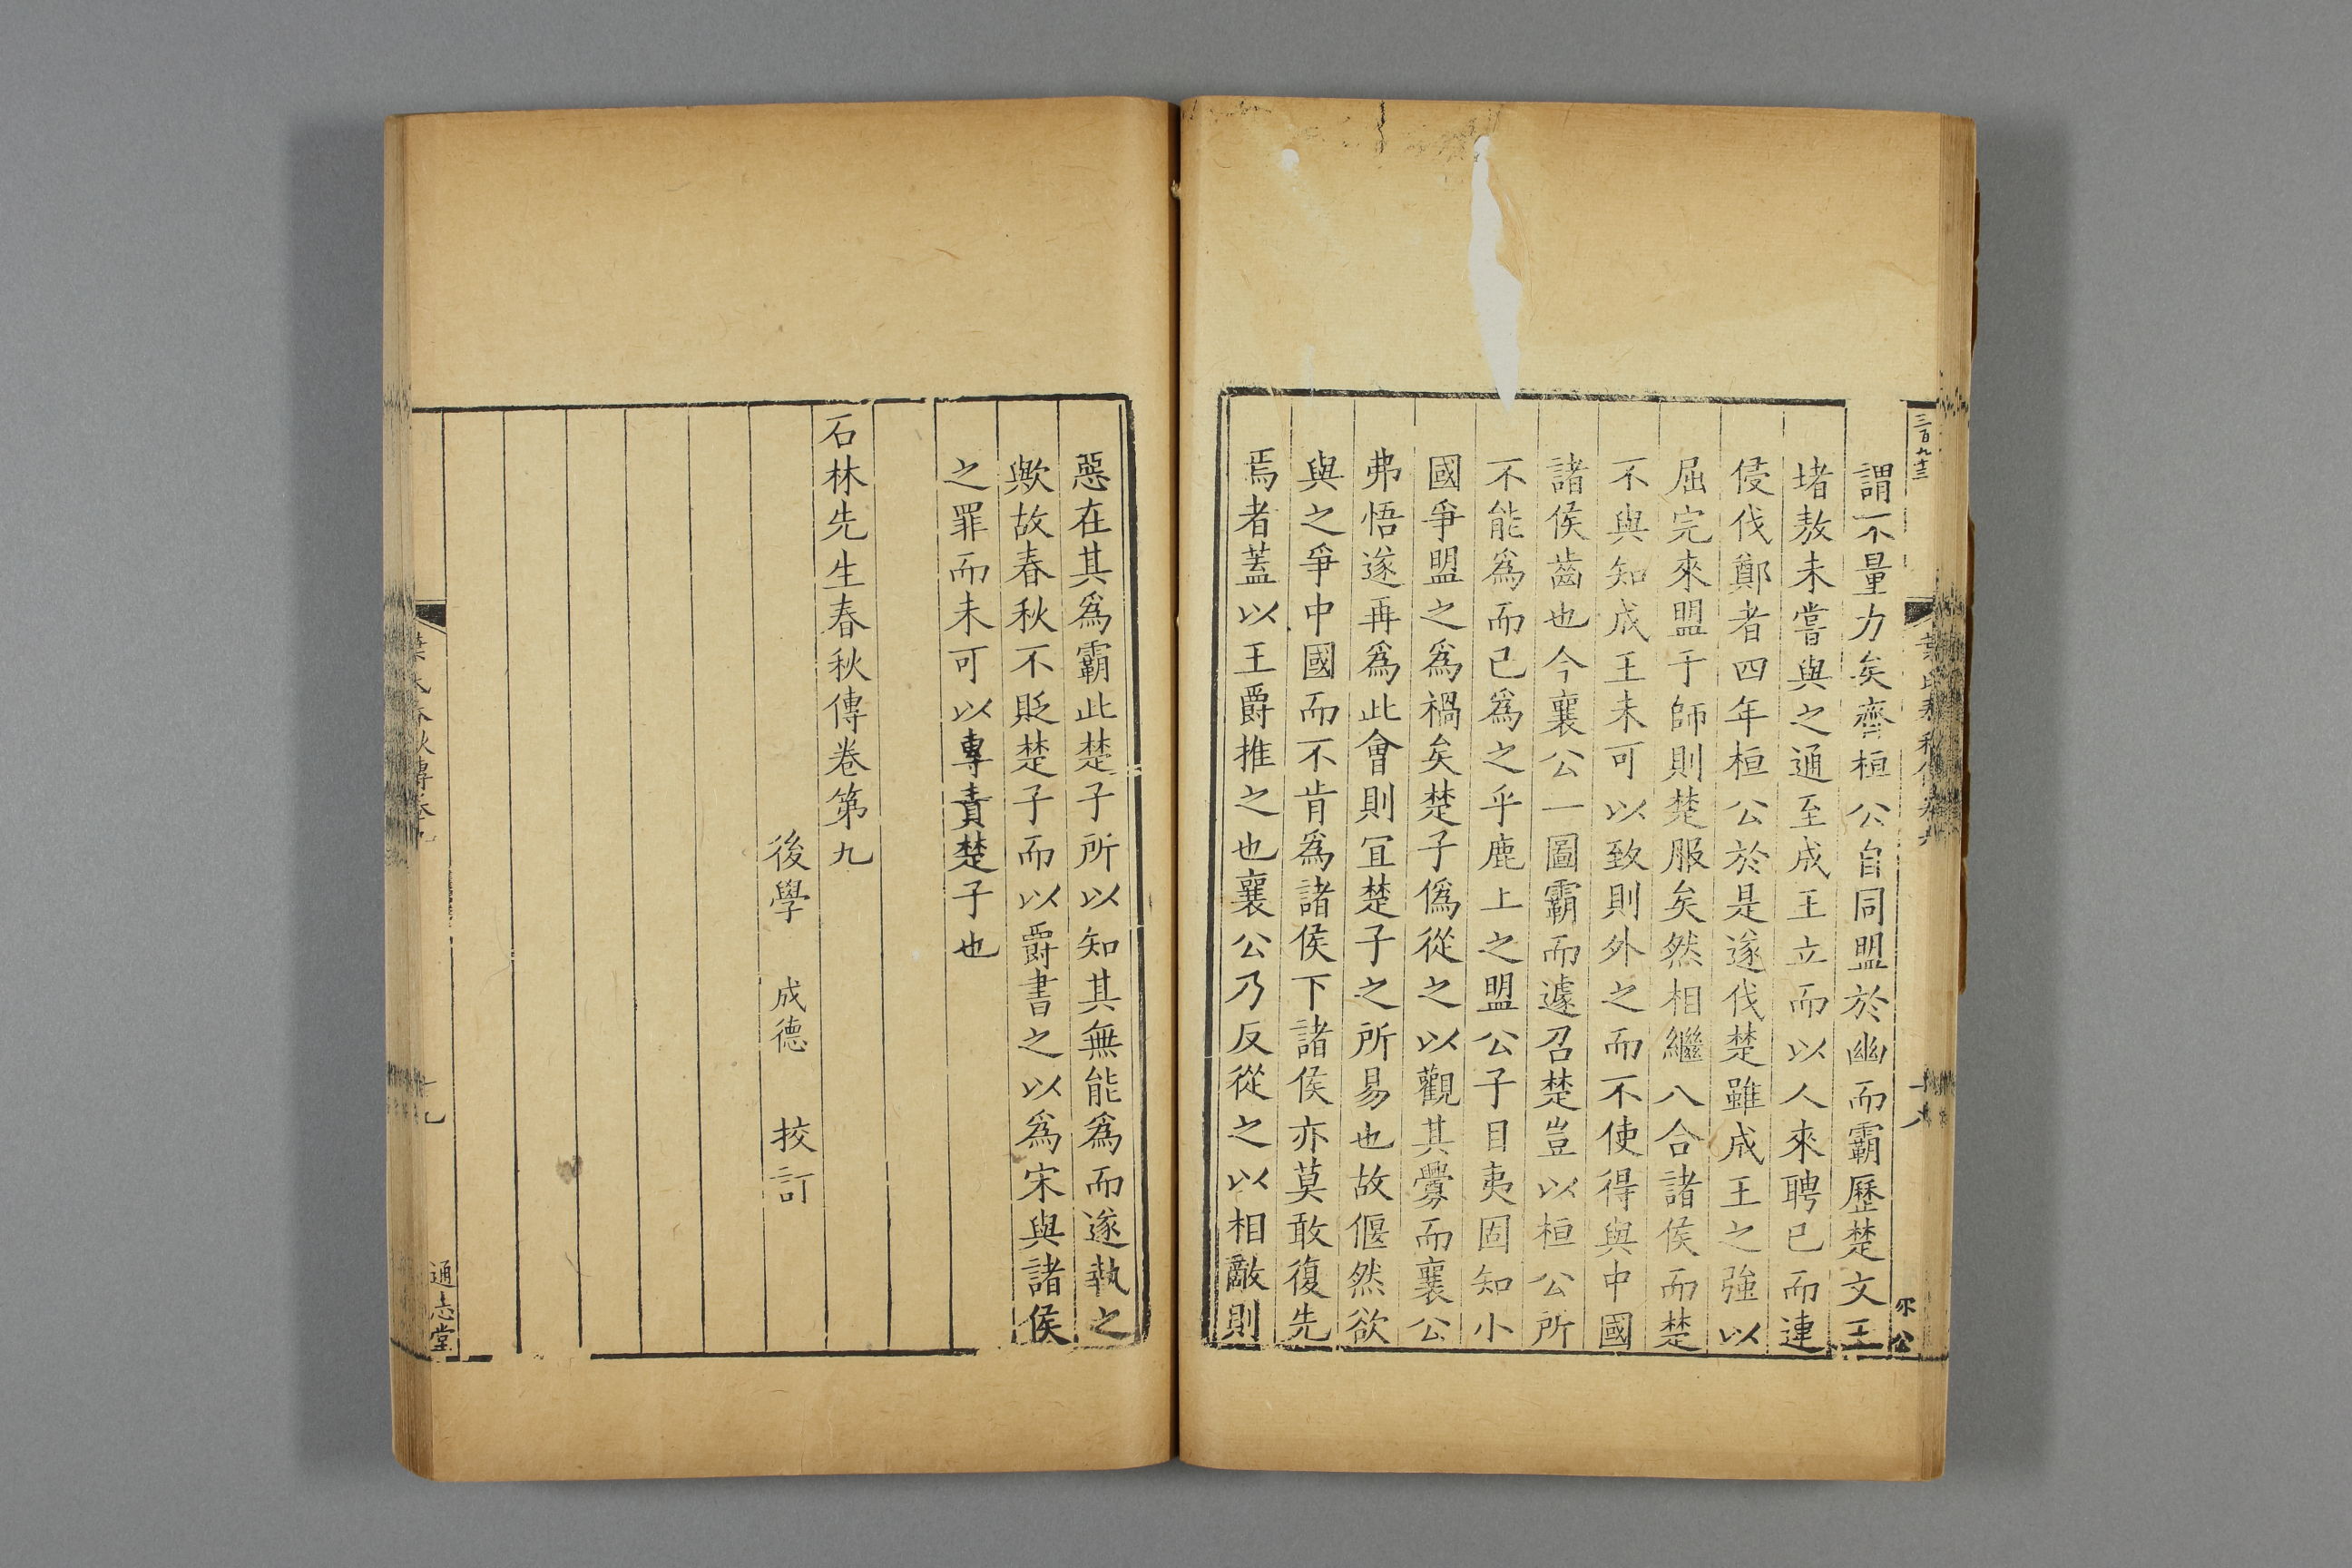 三百九十三
謂不量力矣齊桓公自同盟於幽而霸歷楚文王
堵敖未嘗與之通至成王立而以人來聘已而連
侵伐鄭者四年桓公於是遂伐楚雖成王之強以
屈完來盟于師則楚服矣然相繼八合諸侯而楚
不與知成王未可以致則外之而不使得與中國
諸侯齒也今襄公一圖霸而遽召楚豈以桓公所
不能爲而己爲之乎鹿上之盟公子目夷固知小
國爭盟之爲禍矣楚子僞從之以觀其釁而襄公
弗悟遂再爲此會則宜楚子之所易也故偃然欲
與之爭中國而不肯爲諸侯下諸侯亦莫敢復先
焉者蓋以王爵推之也襄公乃反從之以相敵則
惡在其爲霸此楚子所以知其無能爲而遂執之
歟故春秋不貶楚子而以爵書之以爲宋與諸侯
之罪而未可以專責楚子也
石林先生春秋傳卷第九
後學 成德 挍訂
葉氏春秋傳卷九
十九
通志堂